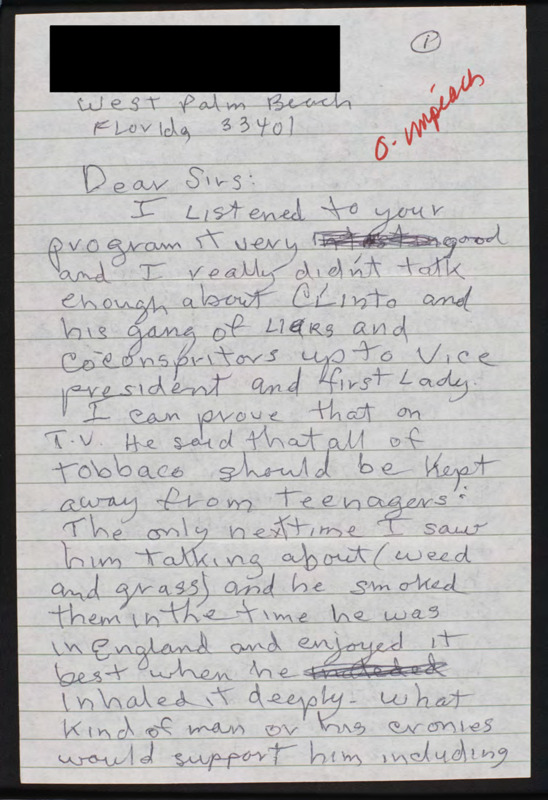 1
West Palm Beach
Florida 33401
O-impeach
Dear Sirs:
I Listened to your
program it very good
and I really didn't talk
enough about CLinto and
his gang of LIeRs and
Coconspritors up to Vice
president and first Lady.
I can prove that on
T.V. He said that all of
tobbaco should be kept
away from teenagers:
The only nexttime I saw
him talking about (weed
and grass) and he smoked
them in the time he was
in England and enjoyed it
best when he
inhaled it deeply - what
kind of man or his cronies
would support him including